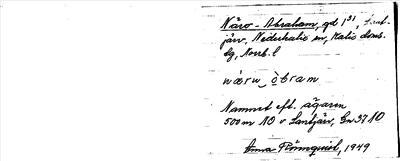 Näro-Abraham, gd 1⁵¹, Lant-
järv, Nederkalix sn, Kalix doms.
sg, Norrb. l
Namnet eft. ägaren
500 m NO v Lantjärv, Gn 37 10
Anna Flömquist, 1949